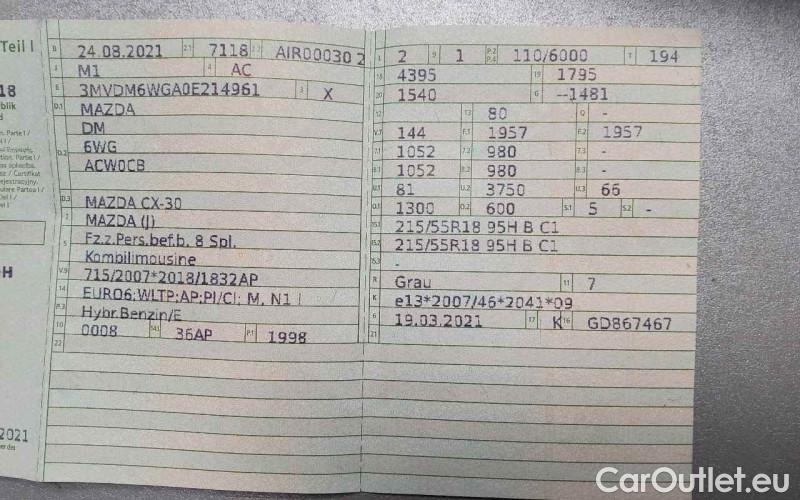 Teil I
B 24.08.2021 2.1 7118 2.2 AIR00030 2
J M1 4 AC
E 3MVDM6WGA0E214961 3 X
D.1 MAZDA
DM
D.2 6WG
ACW0CB
D.3 MAZDA CX-30
2 MAZDA (J)
5 Fz.z.Pers.bef.b. 8 Spl.
Kombilimousine
V.9 715/2007*2018/1832AP
14 EURO6;WLTP;AP;PI/CI; M, N1 I
P.3 Hybr.Benzin/E
10 0008 14.1 36AP P.1 1998
22
L 2 9 1 P.2 P.4 110/6000 T 194
18 4395 19 1795
20 1540 G --1481
12 - 13 80 Q -
V.7 144 F.1 1957 F.2 1957
7.1 1052 7.2 980 7.3 -
8.1 1052 8.2 980 8.3 -
U.1 81 U.2 3750 U.3 66
O.1 1300 O.2 600 S.1 5 S.2 -
15.1 215/55R18 95H B C1
15.2 215/55R18 95H B C1
15.3 -
R Grau 11 7
K e13*2007/46*2041*09
6 19.03.2021 17 K 16 GD867467
21
18
2021
CarOutlet.eu